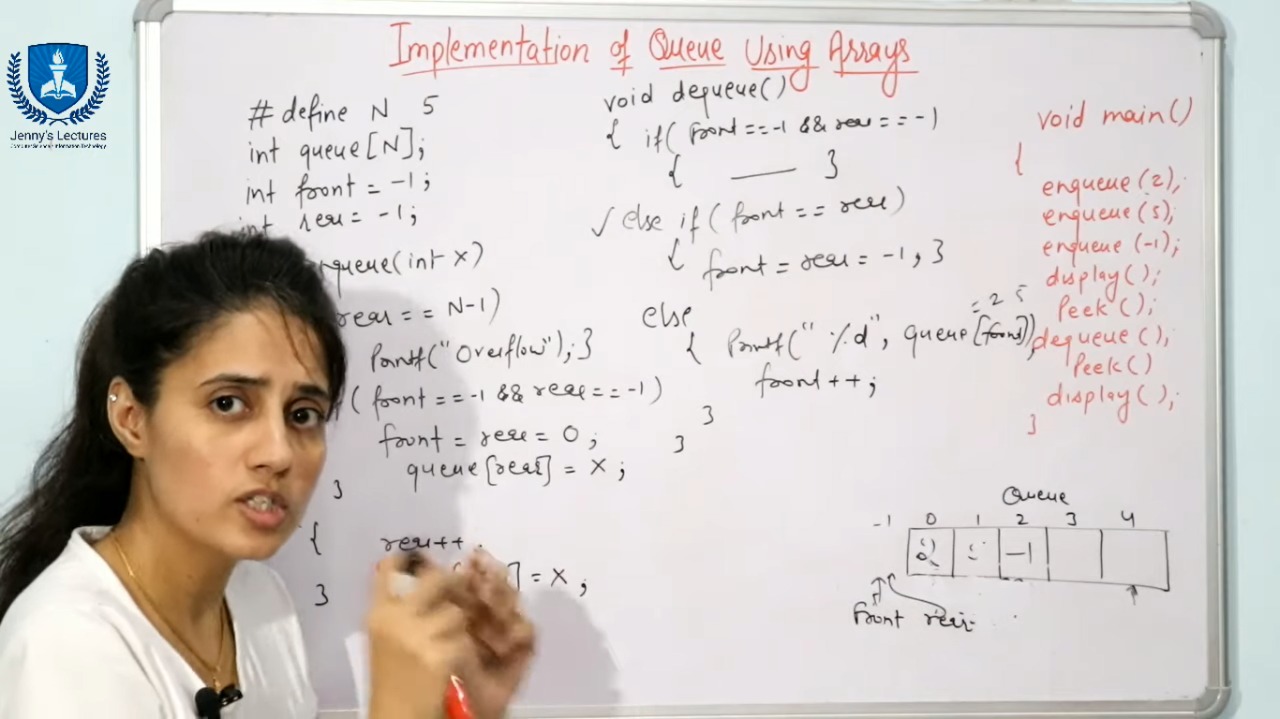 Jenny's Lectures
Computer Science & Information Technology
Implementation of Queue Using Arrays
# define N 5
int queue[N];
int front = -1;
int rear = -1;
nqueue(int x)
rear == N-1)
Printf("Overflow"); }
( front == -1 && rear == -1)
front = rear = 0;
queue[rear] = x;
}
{ rear++
] = x;
}
void dequeue()
{ if( front == -1 && rear == -1
{ }
✓ else if ( front == rear)
{ front = rear = -1; }
else
= 2 5
{ Printf(" %d", queue[front]);
front++;
}
}
void main()
{
enqueue(2);
enqueue(5);
enqueue(-1);
display();
Peek();
dequeue();
Peek()
display();
}
Queue
-1 0 1 2 3 4
2 5 -1
Front rear